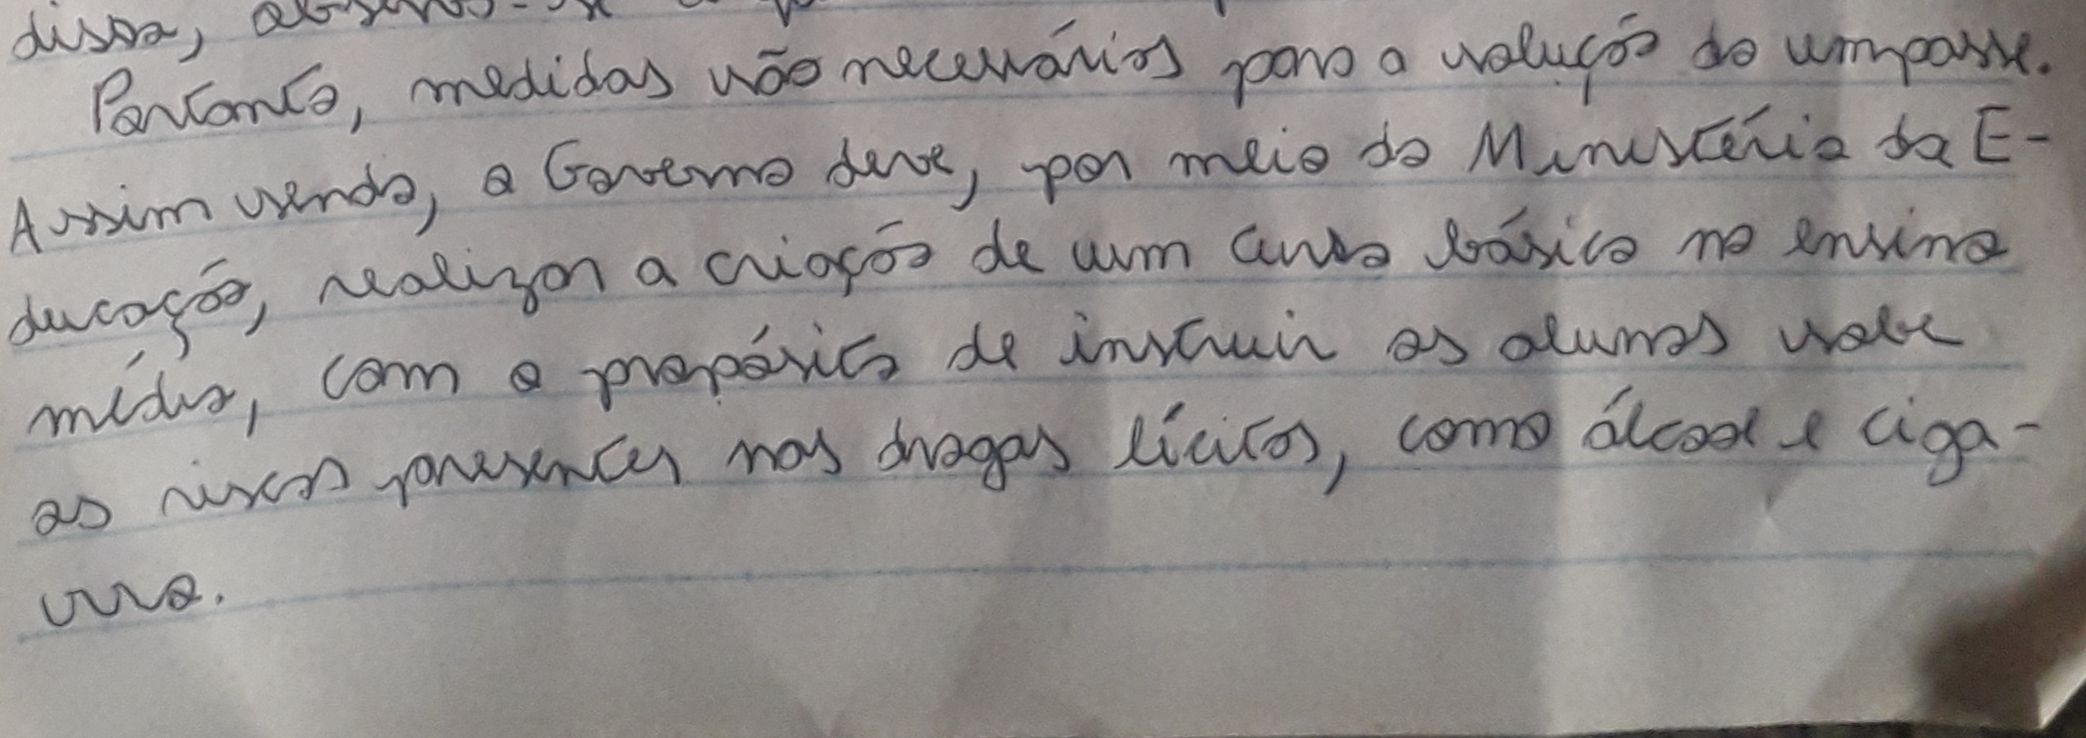 disso, observa-se
Portanto, medidas são necessárias para a solução do impasse.
Assim sendo, o Governo deve, por meio do Ministério da E-
ducação, realizar a criação de um curso básico no ensino
médio, com o propósito de instruir os alunos sobre
os riscos presentes nas drogas lícitas, como álcool e ciga-
rro.